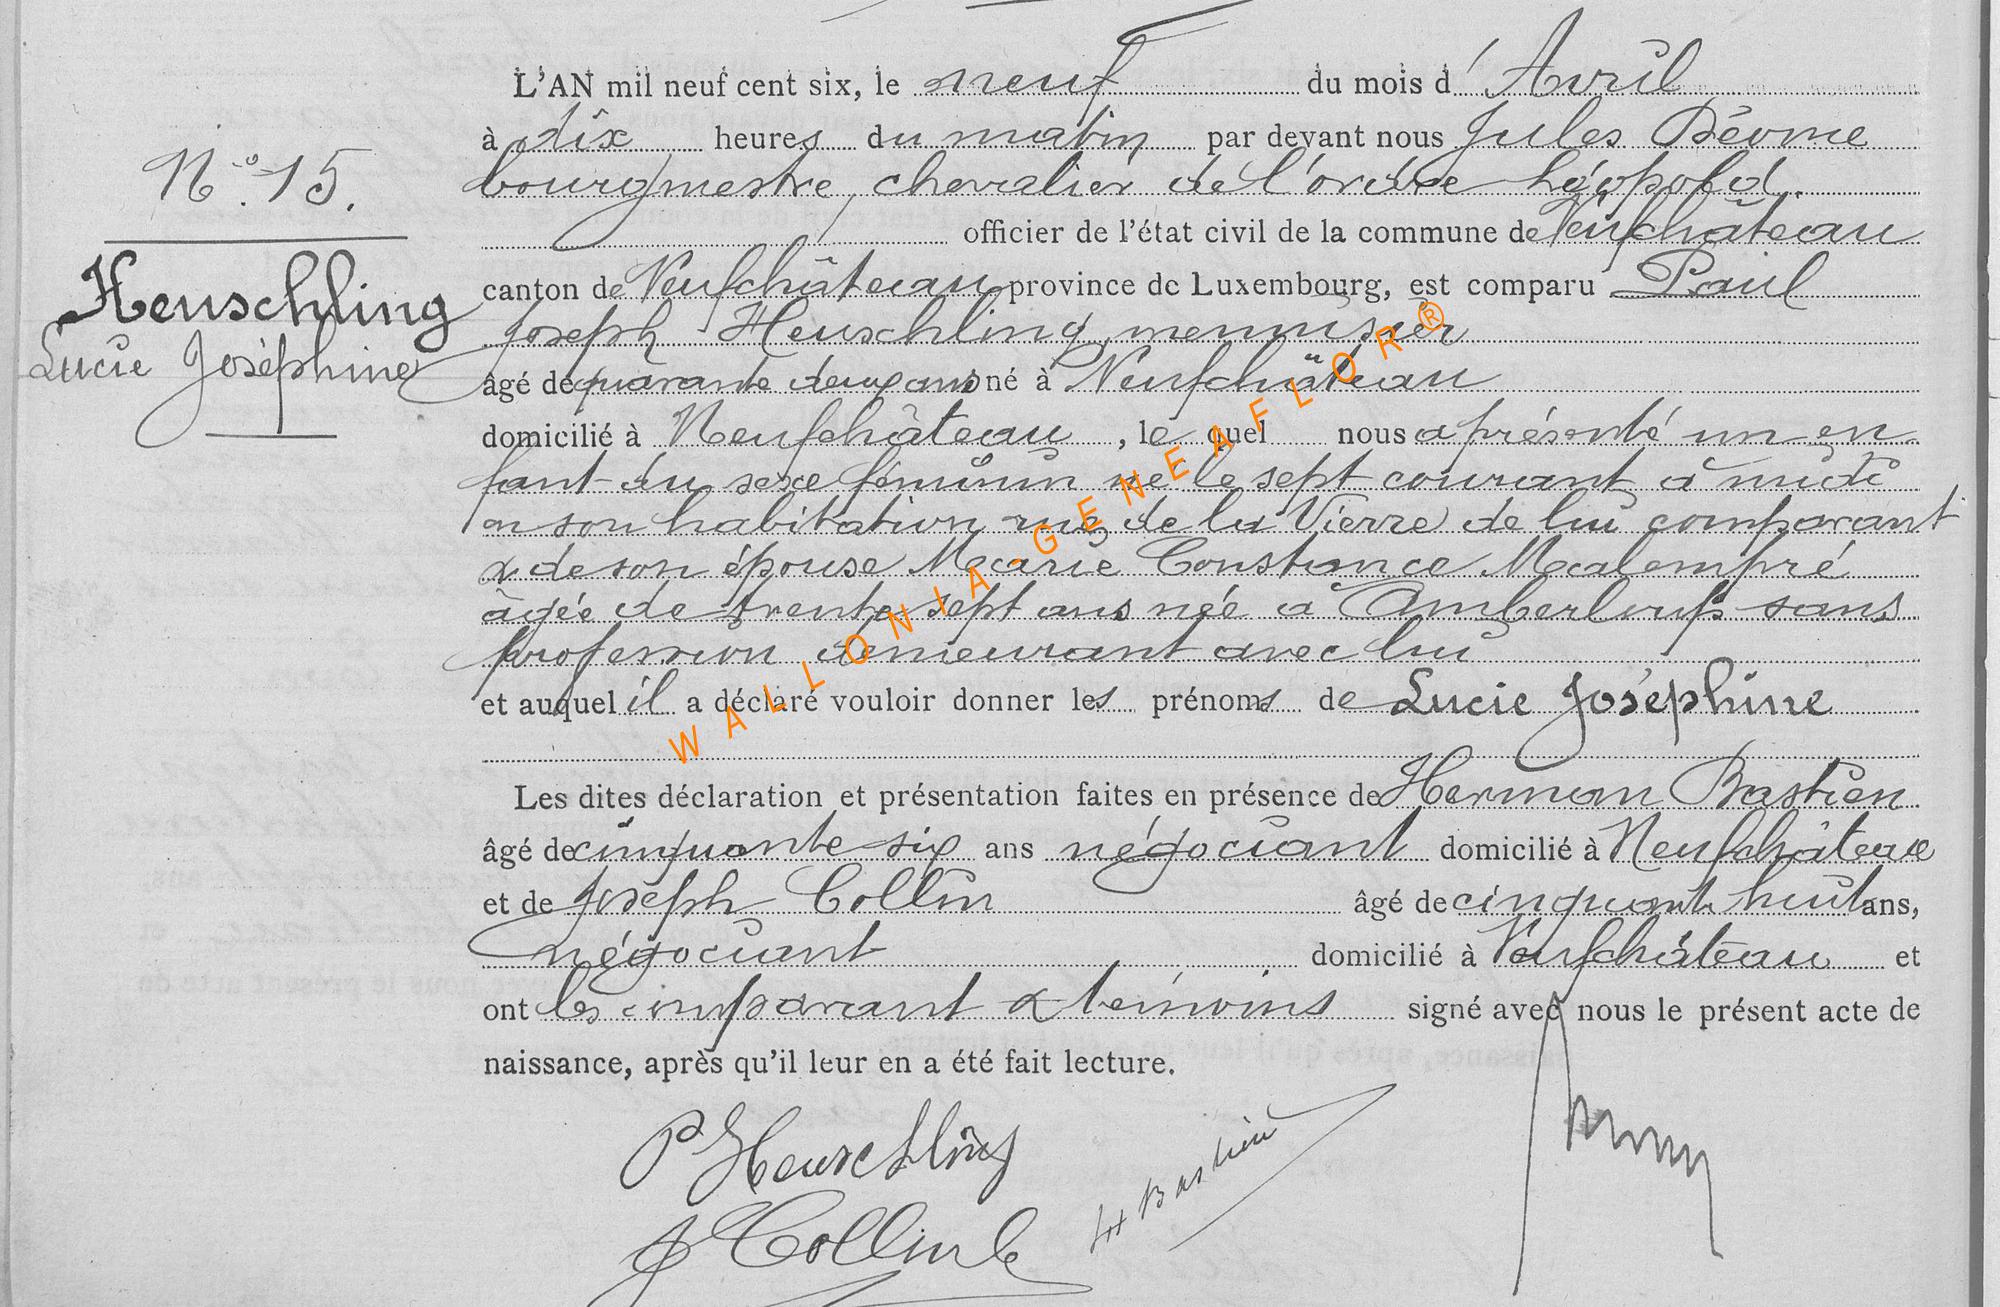 L'AN mil neuf cent six, le neuf du mois d' Avril
à dix heures du matin par devant nous Jules
bourgmestre, chevalier de l'ordre Léopold.
N° 15.
officier de l'état civil de la commune de Neufchâteau
Heuschling
canton de Neufchâteau province de Luxembourg, est comparu Paul
Joseph Heuschling, menuisier
Lucie Joséphine
âgé de quarante deux ans né à Neufchâteau
domicilié à Neufchâteau , le quel nous a présenté un en
fant du sexe féminin né le sept courant à midi
en son habitation rue de la Vierre de lui comparant
& de son épouse Marie Constance Malempré
âgée de trente sept ans née à Amberloup sans
profession demeurant avec lui
et auquel il a déclaré vouloir donner les prénoms de Lucie Joséphine
Les dites déclaration et présentation faites en présence de Herman Bastien
âgé de cinquante six ans négociant domicilié à Neufchâteau
et de Joseph Collin âgé de cinquante huit ans,
négociant domicilié à Neufchâteau et
ont les comparant & témoins signé avec nous le présent acte de
naissance, après qu'il leur en a été fait lecture.
P Heuschling
H Bastien
J Collin
WALLONIA-GENEAFLOR®